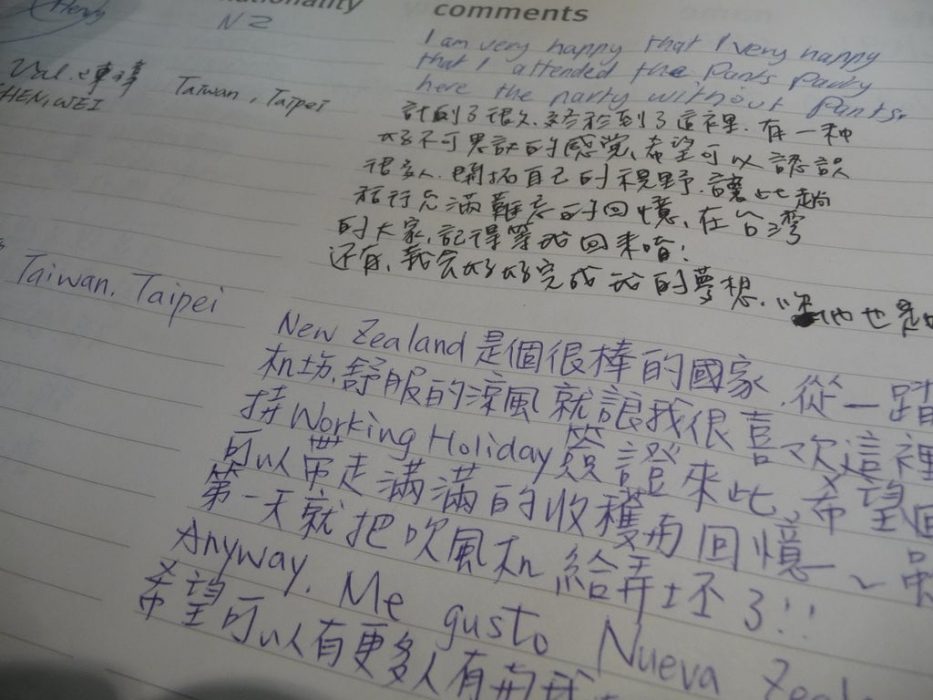 Nationality comments
Henry NZ I am very happy that I very happy
that I attended the Pants Party
here the party without Pants.
CHEN, WEI Taiwan, Taipei 計劃了很久,終於到了這裡.有一種
好不可思議的感覺,希望可以認識
很多人.開拓自己的視野.讓此趟
旅行充滿難忘的回憶,在台灣
的大家,記得等我回來唷!
還有,我會好好完成我的夢想.
他也是
Taiwan. Taipei
New Zealand是個很棒的國家.從一踏
机場,舒服的涼風就讓我很喜欢這裡
持Working Holiday簽證來此,希望回
可以帶走滿滿的收穫和回憶~
第一天就把吹風机給弄坏了!!
Anyway. Me gusto Nueva Zeal
希望可以有更多人有